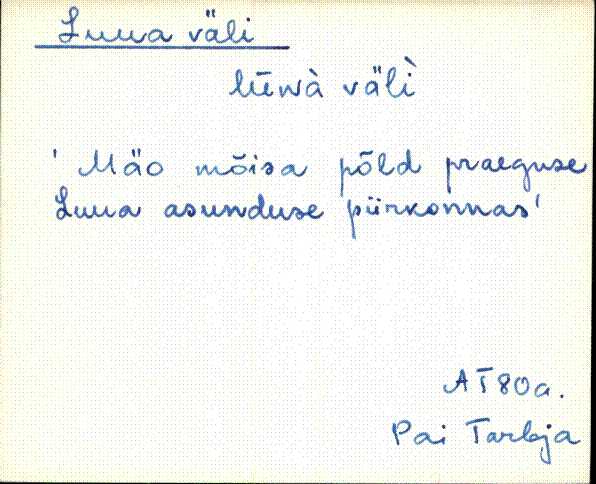 Luua väli
lūwà väl̀i
' Mäo mõisa põld praeguse
Luua asunduse piirkonnas'
AT80a.
Pai Tarbja